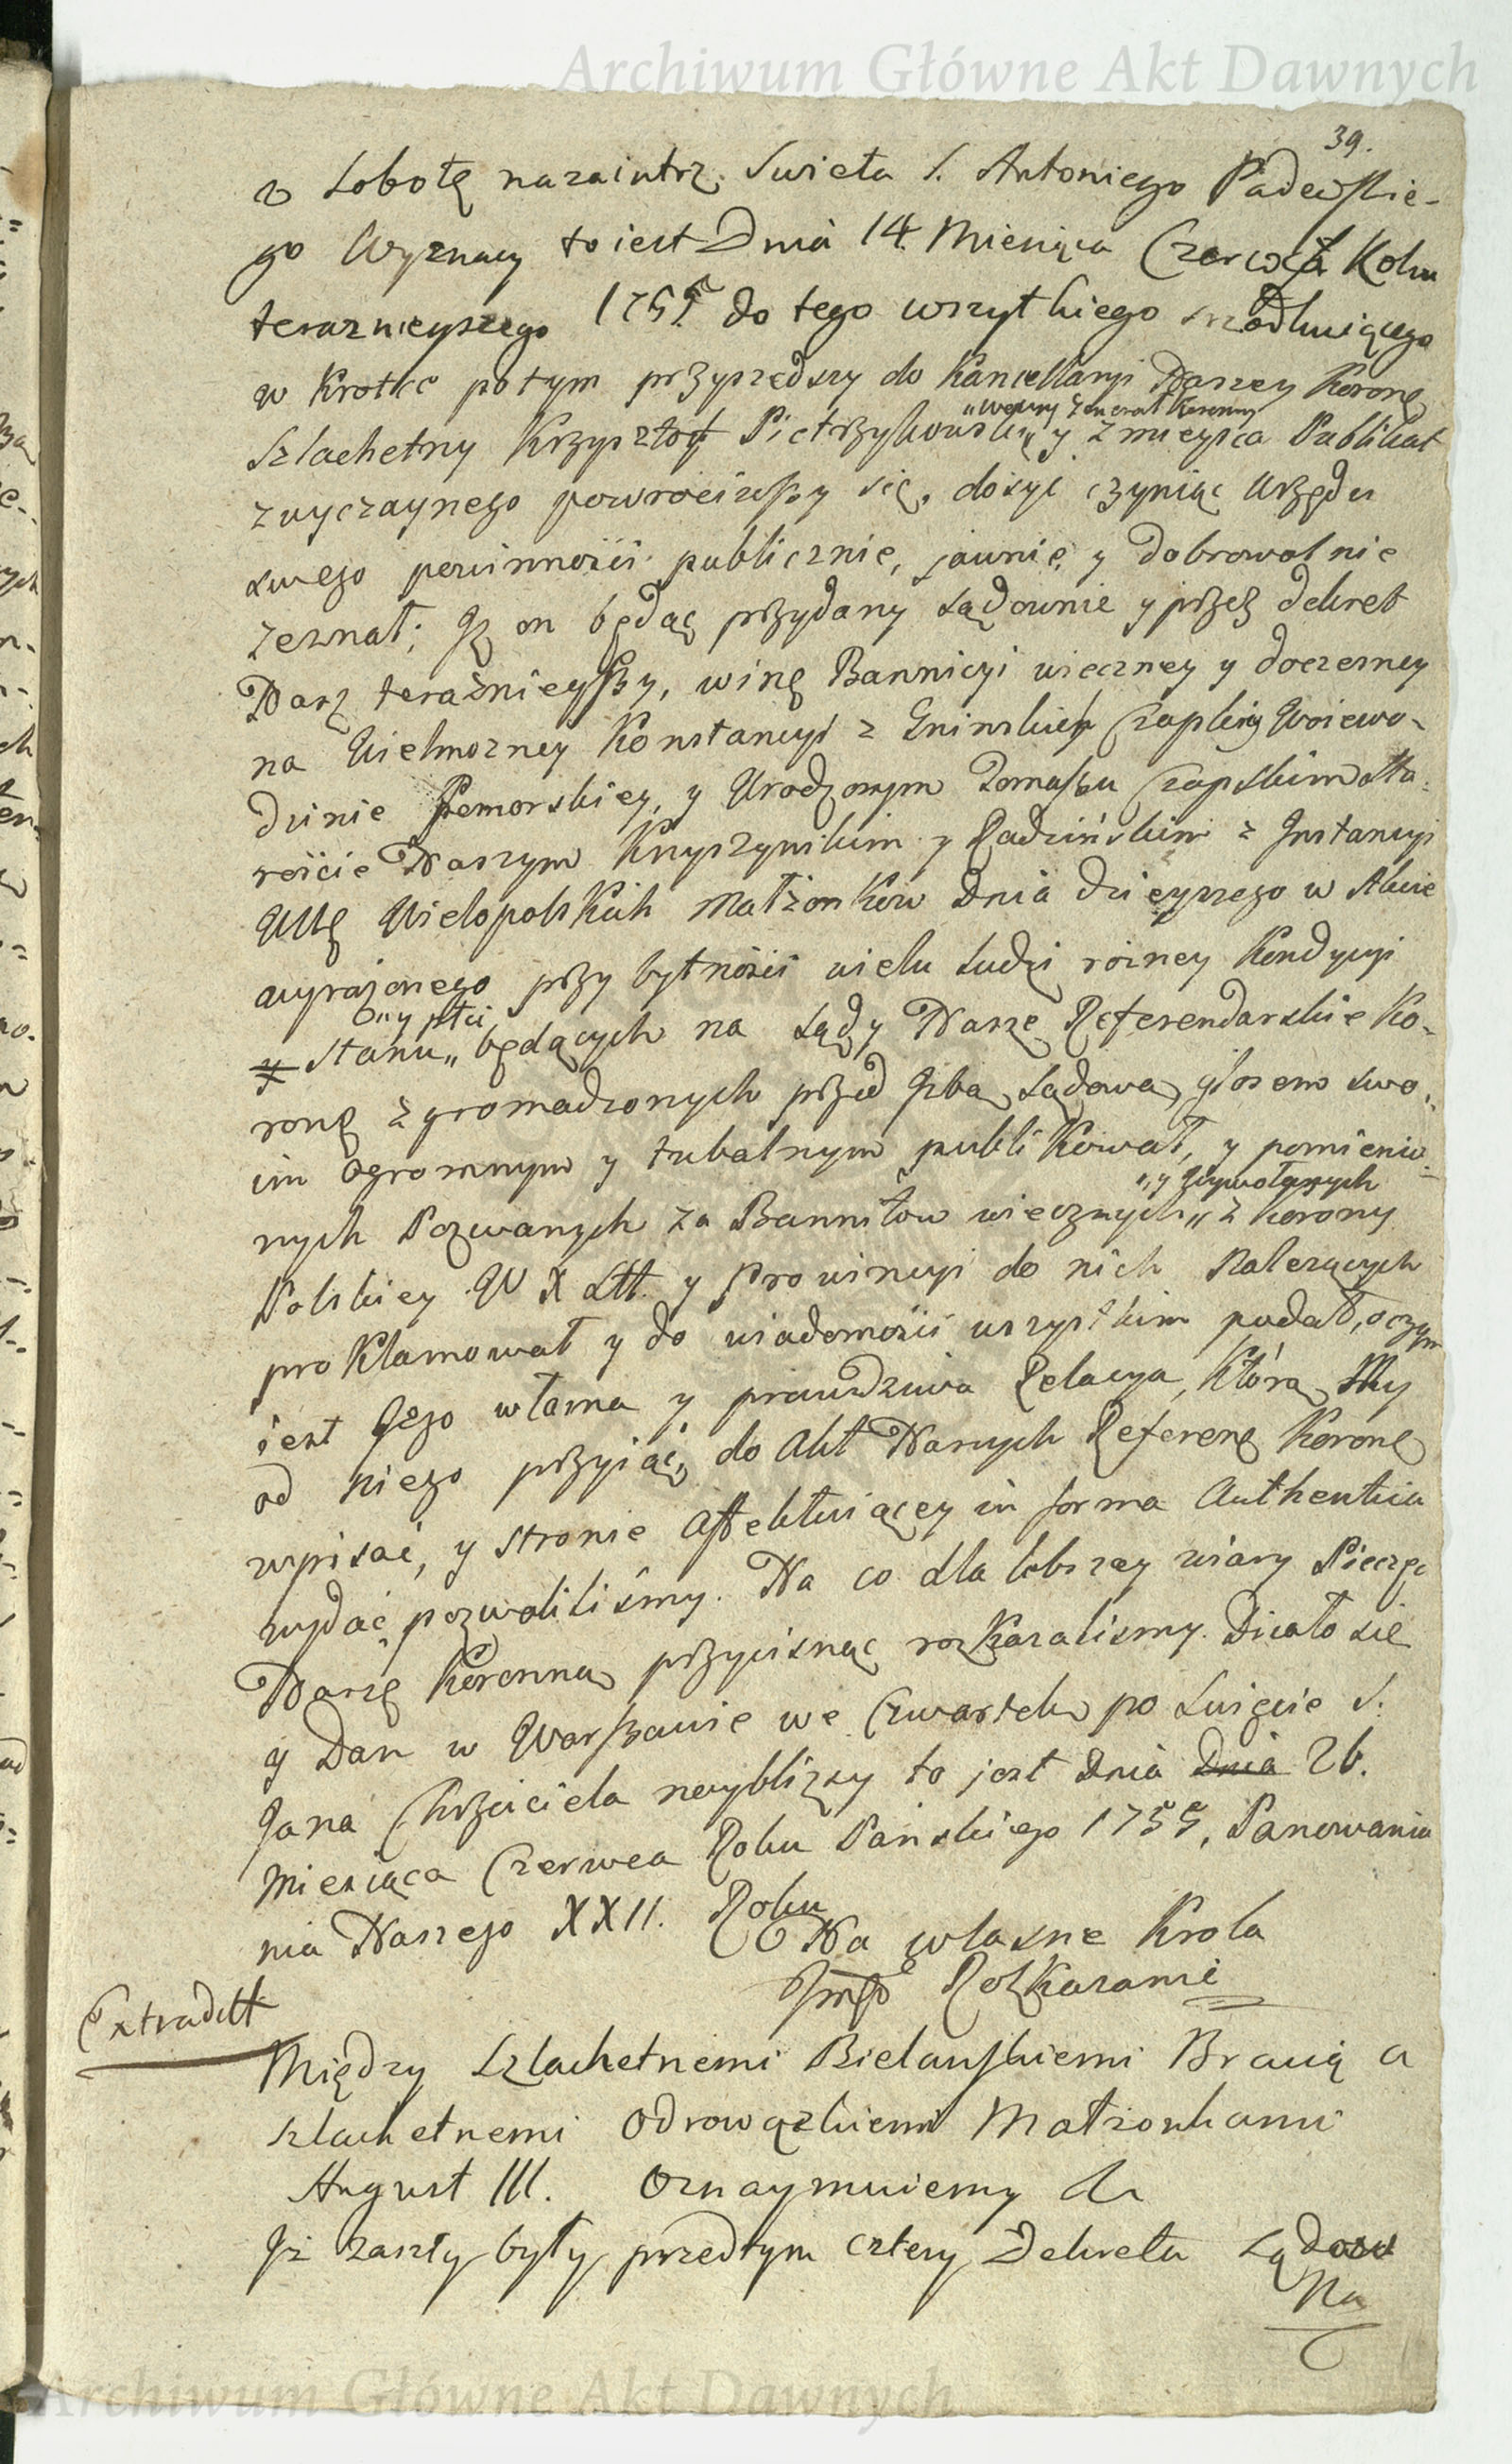 Archiwum Główne Akt Dawnych
39.
w Sobotę nazaiutrz Swieta S. Antoniego Padewskie-
go Wyznacy to iest Dnia 14. Miesiąca Czerwca Roku
teraznieyszego 1755. do tego wszytkiego
w Krotce potym przyszedszy do Kancellaryi Naszey Koronę
"Wozny Generał Koronny
Szlachetny Krzysztof Pietrzykowski y z mieysca Publikat
zwyczaynego powrociwszy się, dosyć czyniąc Urzędu
swego powinnosci publicznie, jawnie, y dobrowolnie
zeznał; Jż on będąc przydany sądownie y przez dekret
Nasz teraźnieyszy, winę Bannicyi wieczney y doczesney
na Wielmozney Konstancyi z Gninskich Czapskiey Woiewo-
dzinie Pomorskiey, y Urodzonym Tomaszu Czapskim Sta-
roscie Naszym Knyszynskim y Radzińskim z Jnstancyi
UUę Wielopolskich Małżonkow Dnia dzieyszego w Akcie
wyrażonego przy bytnosci wielu Ludzi rozney Kondycyi
"y płci
y Stanu" będących na Sądy Nasze Referendarskie Ko-
ronę zgromadzonych przed Jzbą Sądową, głosem swo-
im ogromnym y trubalnym publikował, y pomienio-
"y wywołanych
nych Pozwanych za Bannitow wiecznych" z Korony
Polskiey W X Litt. y Prowincyi do nich Nalezących
proklamował y do wiadomosci wszystkim podał, o czym
iest Jego własna y prawdziwa Relacya, Którą My
od niego przyiąć, do Akt Naszych Referenę Koronę
wpisać, y stronie affektuiącey in forma Authentica
wydać pozwolilismy. Na co dla lebszey wiary Pieczęć
Naszę Koronną przycisnąć rozkazalismy. Działo się
y Dan w Warszawie we Czwartek po Swięcie S.
Jana Chrzciciela nayblizszy to jest Dnia Dnia 26.
Miesiąca Czerwca Roku Pańskiego 1755, Panowania
nia Naszego XXII. Roku
Na własne Krola
Jmć Rozkazanie
Extraditt
Między Szlachetnemi Bielawskiemi Bracią a
szlachetnemi Odrowązkiemi Małzonkami
August III. Oznaymuiemy &
Jż zaszły były przedtym cztery Dekreta Sądow
Na
Archiwum Główne Akt Dawnych